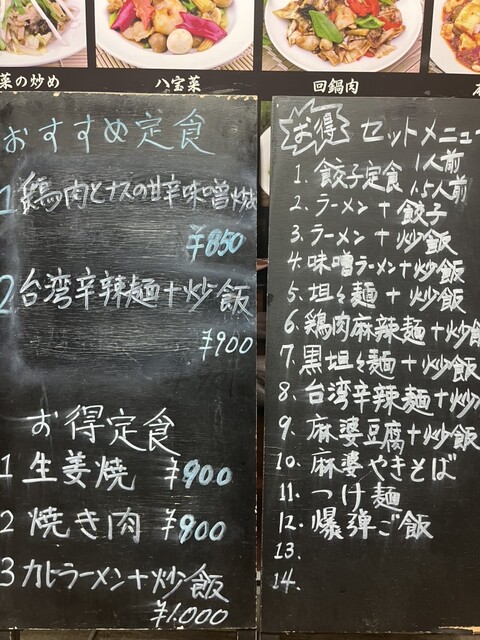 菜の炒め
八宝菜
回鍋肉
おすすめ定食
1 鶏肉とナスの甘辛味噌炒
¥850
2 台湾辛辣麺+炒飯
¥900
お得定食
1 生姜焼 ¥900
2 焼き肉 ¥900
3 カルラーメン+炒飯
¥1.000
お得 セットメニュー
1. 餃子定食 1人前
1.5人前
2. ラーメン+餃子
3. ラーメン+炒飯
4. 味噌ラーメン+炒飯
5. 坦々麺+炒飯
6. 鶏肉麻辣麺+炒飯
7. 黒坦々麺+炒飯
8. 台湾辛辣麺+炒
9. 麻婆豆腐+炒飯
10. 麻婆やきそば
11. つけ麺
12. 爆弾ご飯
13.
14.